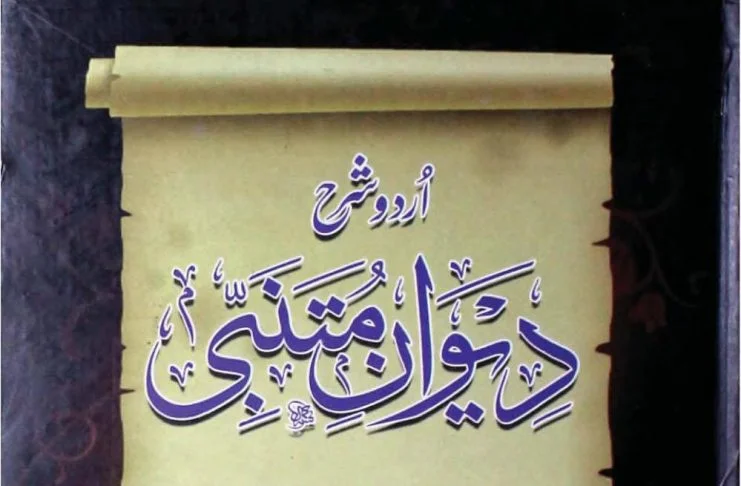 اُردو شرح
دِیوَانِ مُتَنَبِّی